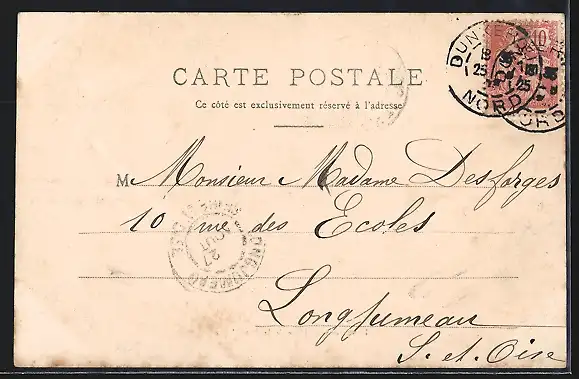 10
DUNKERQUE
NORD
CARTE POSTALE
Ce côté est exclusivement réservé à l'adresse
M Monsieur Madame Desforges
10 rue des Ecoles
LONGJUMEAU
27
AOUT
Longjumeau
S. et. Oise